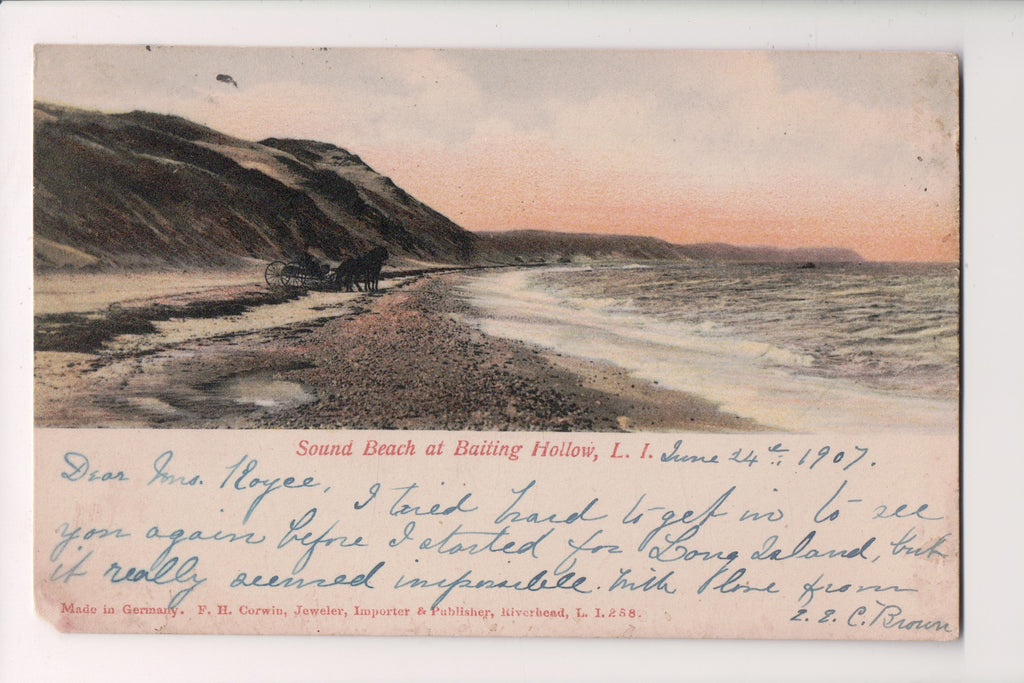 Sound Beach at Baiting Hollow, L. I. June 24th 1907.
Dear Mrs. Royce, I tried hard to get in to see
you again before I started for Long Island, but
it really seemed impossible. With love from
E. E. C. Brown
Made in Germany. F. H. Corwin, Jeweler, Importer & Publisher, Riverhead, L. I. 288.